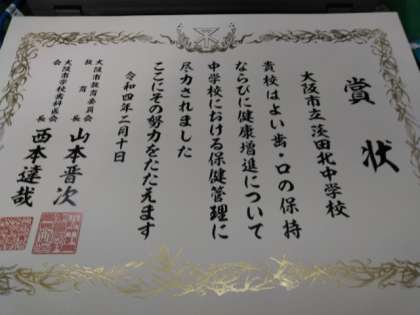 賞状
大阪市立淀田北中学校
貴校はよい歯・口の保持
ならびに健康増進について
中学校における保健管理に
尽力されました
ここにその努力をたたえます
令和四年二月十日
大阪市教育委員会
教育長 山本晋次
大阪市学校歯科医会
会長 西本達哉